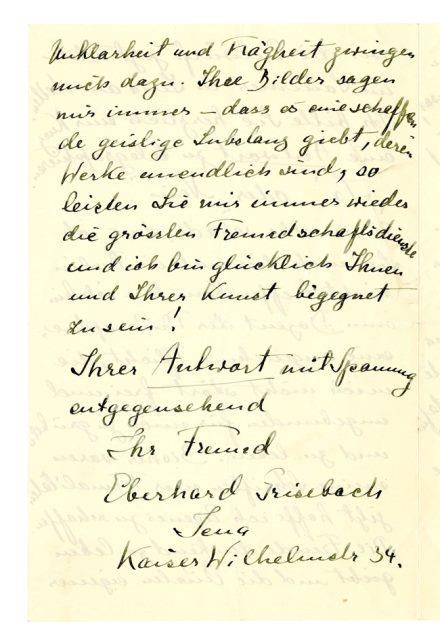 Unklarheit und Trägheit zwingen
mich dazu. Ihre Bilder sagen
mir immer – dass es eine schaffen-
de geistige Substanz giebt, deren
Werke unendlich sind, so
leisten Sie mir immer wieder
die grössten Freundschaftsdienste
und ich bin glücklich Ihnen
und Ihrer Kunst begegnet
zu sein!
Ihrer Antwort mit Spannung
entgegensehend
Ihr Freund
Eberhard Grisebach
Jena
Kaiser Wilhelmstr 34.